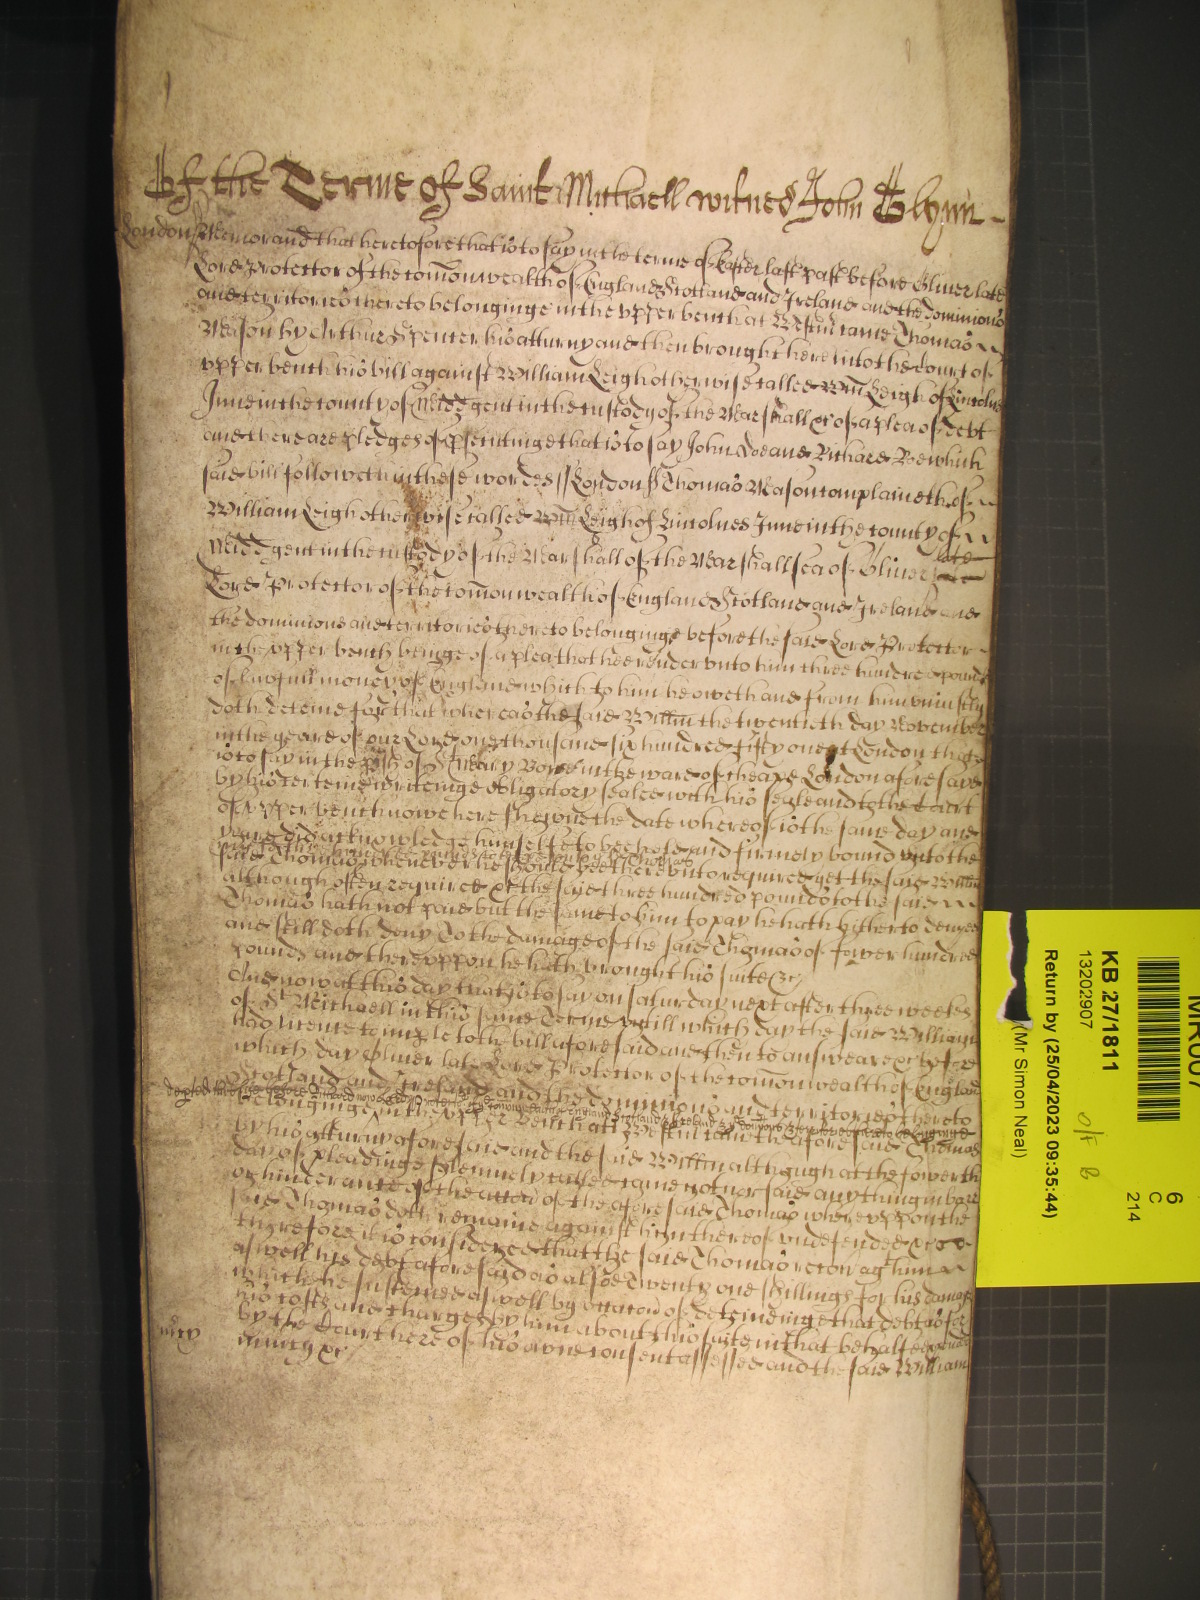 Of the Terme of Saint Michaell witnes John Glynn
London ss Memorand that heretofore that is to say in the terme of Easter last past before Oliver late
Lord Protector of the com̄onwealth of England Scotland and Ireland and the dominions
and territories thereto belonginge in the vpper bench at Westm̄ came Thomas
Mason by Arthur Spencer his atturny and then brought here into the Court of
vpper bench his bill against William Leigh otherwise called Wm̄ Leigh of Lincolns
Inne in the county of Midd gent in the custody of the Marshall &c of a plea of debt
and there are pledges of p̄secutinge that is to say John Doe and Richard Roe which
said bill followeth in these wordes ss London ss Thomas Mason complaineth of
William Leigh otherwise called Wm̄ Leigh of Lincolnes Inne in the county of
Midd gent in the custody of the Marshall of the Marshallsea of Oliver late
Lord Protector of the com̄onwealth of England Scotland and Ireland and
the dominions and territories thereto belonginge before the said Lord Protector
in the vpper bench beinge of a plea that hee render vnto him three hundred pounds
of lawfull money of England which to him he oweth and from him vniustly
doth deteine for that whereas the said Willm the twentieth day November
in the yeare of our Lord one thousand six hundred fifty one at London that
is to say in the p̄ish of St Mary Bow in the ward of Cheape London aforesaid
by his certeine writeinge obligatory sealed with his seale and to the Court
of vpper bench nowe here shewne the date whereof is the same day and
yeare did acknowledge himselfe to be held and firmely bound vnto the
said Thomas whenever he should bee therevnto required yet the said Willm
although often required &c the said three hundred pounds to the said
Thomas hath not paid but the same to him to pay he hath hitherto denyed
and still doth deny To the damage of the said Thomas of fower hundred
pounds and therevppon he hath brought his suite &c
And now at this day that is to say on Saturday next after three weekes
of St Michaell in this same Terme vntill which day the said William
had licence to imple to the bill aforesaid and then to answeare &c before
which day Oliver late Lord Protector of the com̄onwealth of England
Scotland and Ireland and the dominions and territories thereto
belonginge in the vpper bench att Westm̄ came the aforesaid Thomas
by his atturny aforesaid and the said Willm although at the fowerth
day of pleadinge solemnely called came not nor said anything in barr
or hinderance of the accōn of the aforesaid Thomas wherevppon the
said Thomas doth remaine against him thereof vndefended &c
therefore it is considered that the said Thomas recov̄ aḡt him
aswell his debt aforesaid as alsoe Twenty one shillings for his damages
which he susteined aswell by occasion of deteininge that debt as for
his costs and charges by him about his suite in that behalfe expended
by the Court here of his owne consent assessed and the said William
mrcy
in mercy &c
KB 27/1811
13202907
Return by (25/04/2023 09:35:44)
(Mr Simon Neal)
6
C
214